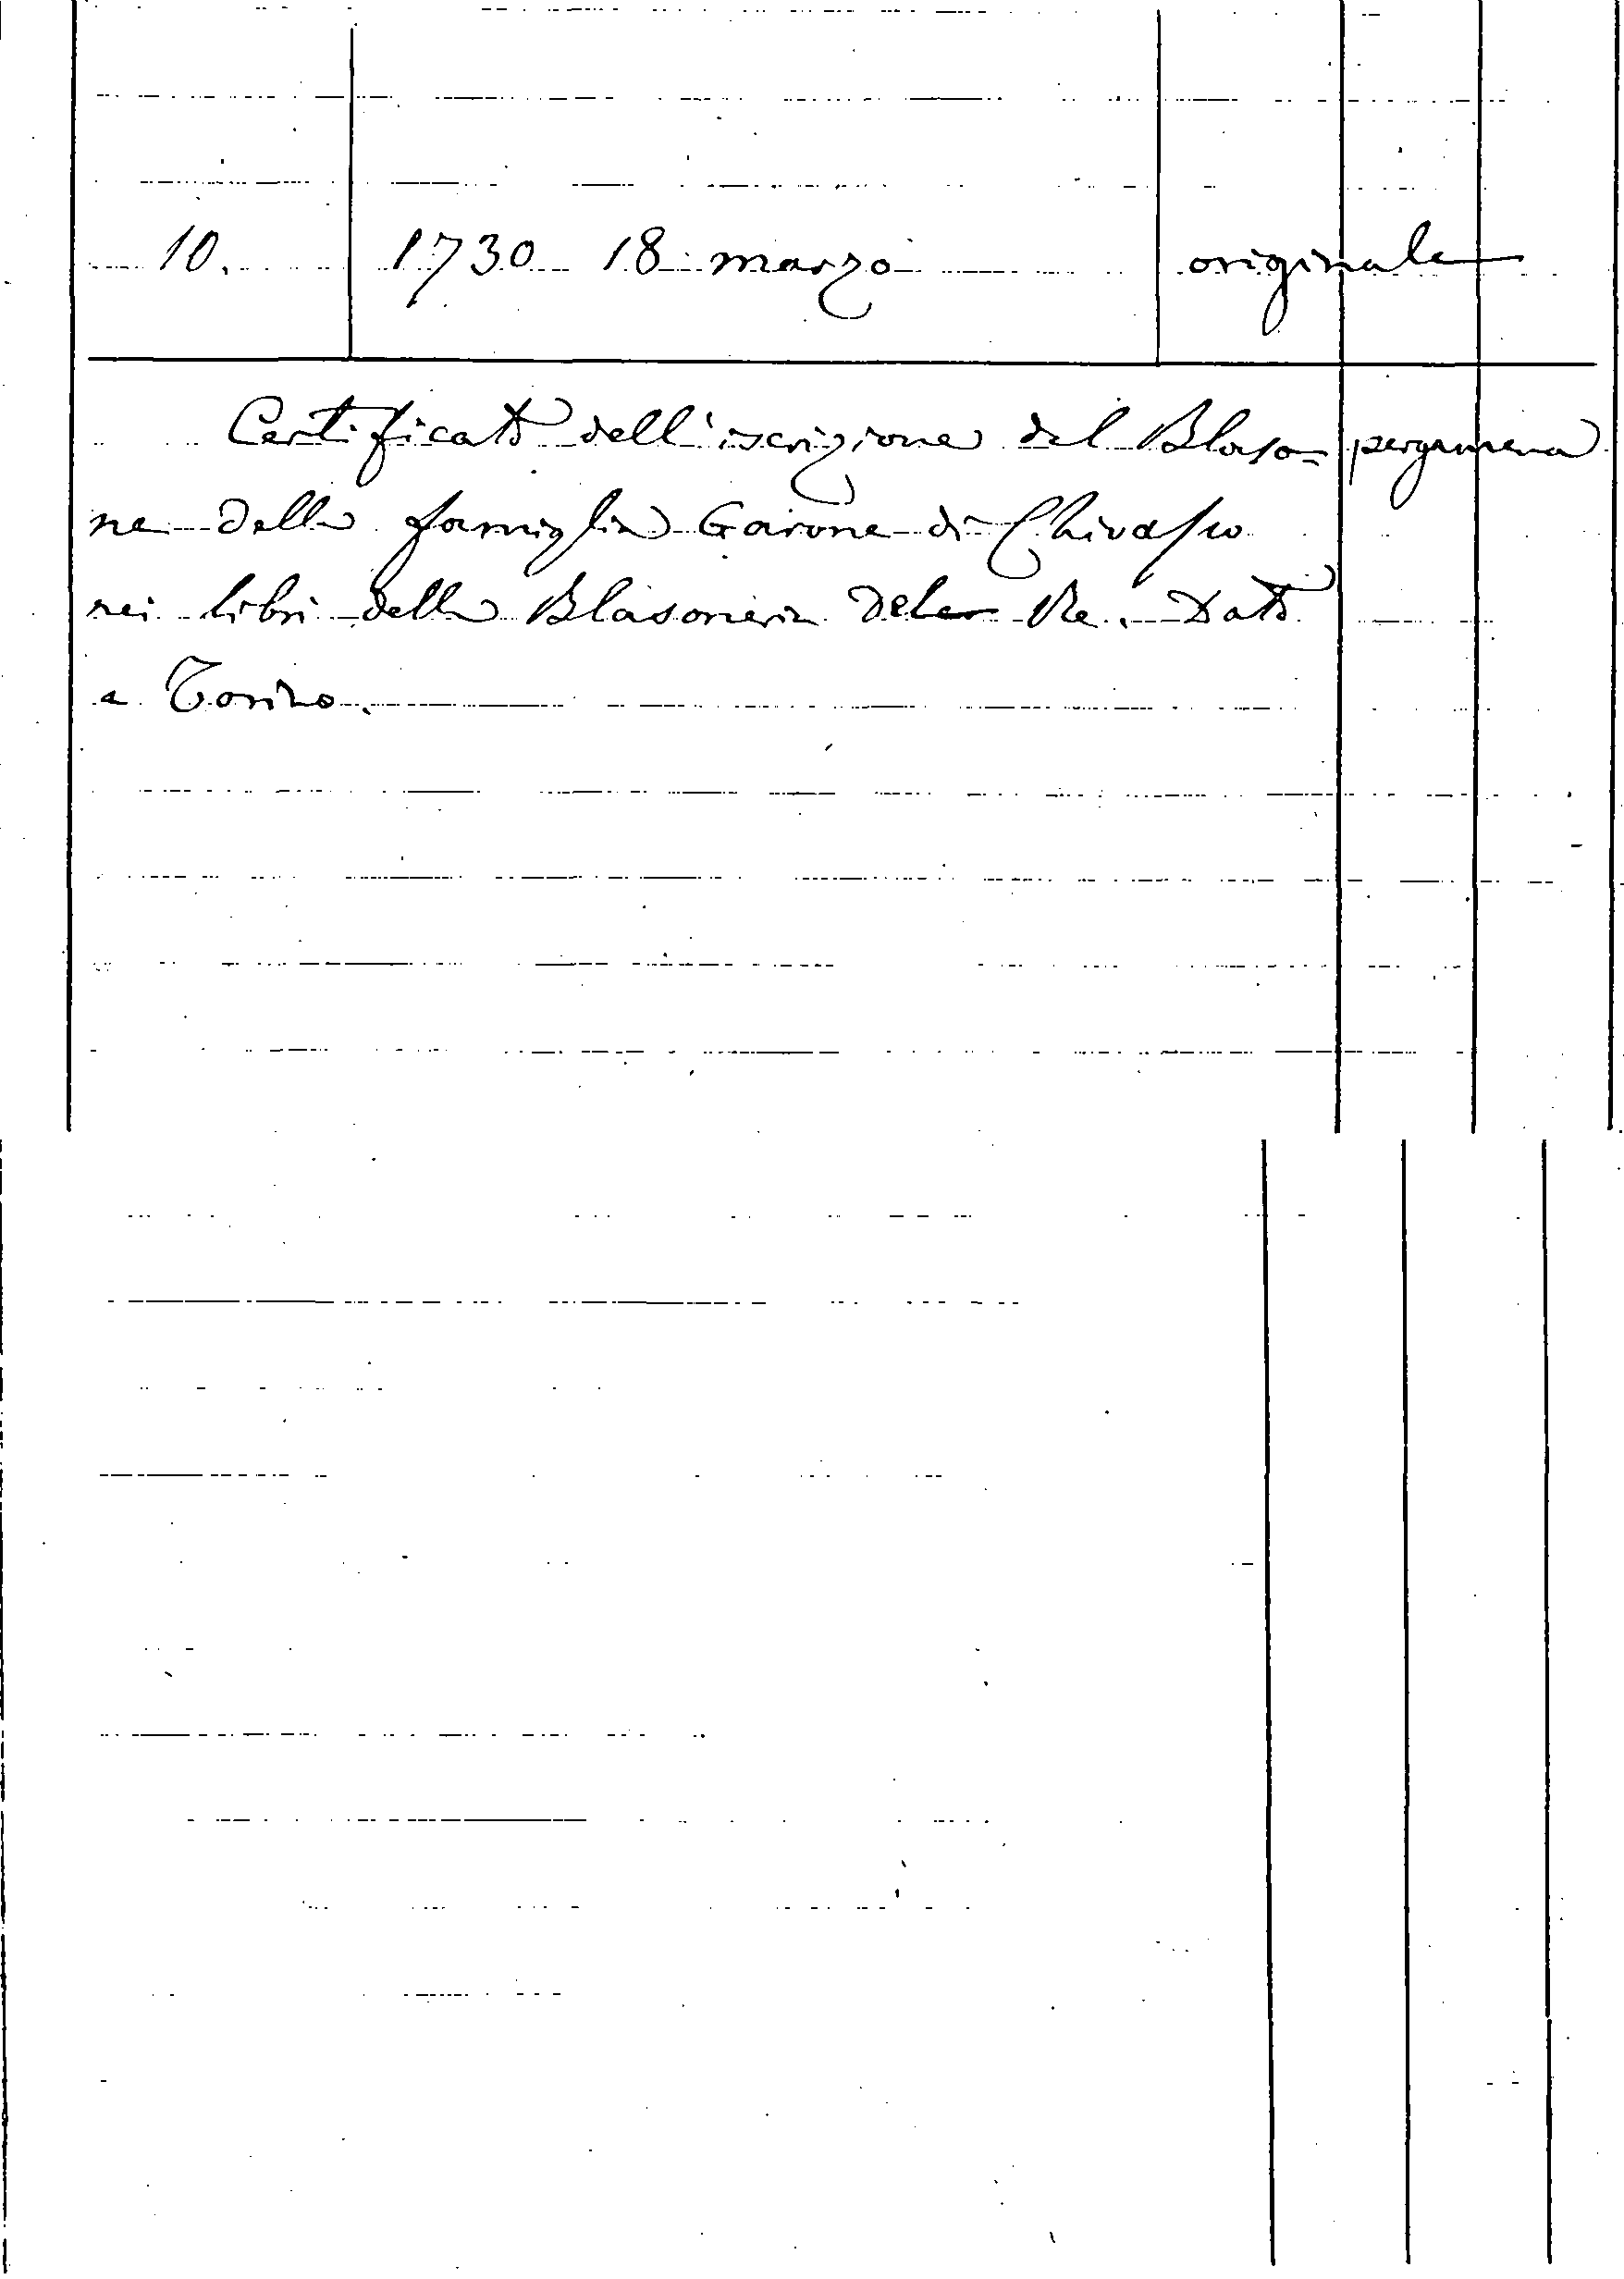 10. 1730 18 marzo originale
Certificato dell'iscrizione del Blaso= pergamena
ne della famiglia Garone di Chivasso
nei libri della Blasoneria del Re. Dato
a Torino.